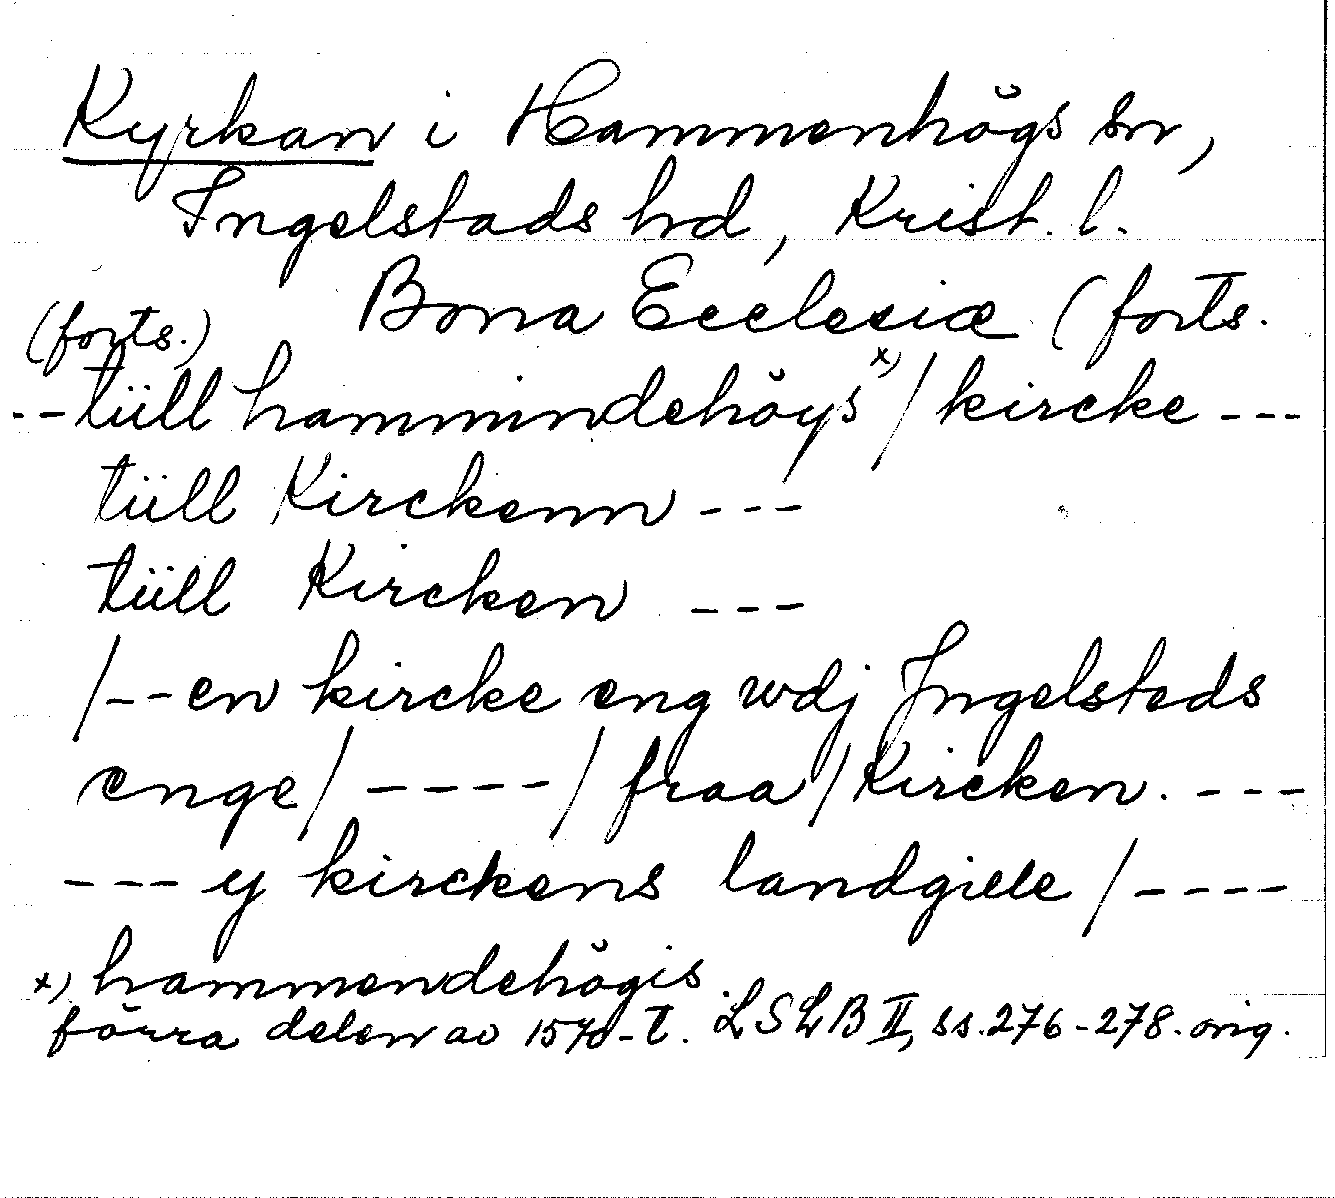 Kyrkan i Hammenhögs sn,
Ingelstads hd, Krist. l.
(forts.) Bona Ecclesiæ (forts.
-- tüll hammindehöys x) / kircke ---
tüll Kirckenn ---
tüll Kircken ---
/-- en kircke eng wdj Ingelsteds
enge / ---- / fraa / Kircken. ---
--- y kirckens landgille / ----
x) hammendehögis
förra delen av 1570-t. LSLB II, ss. 276-278. orig.